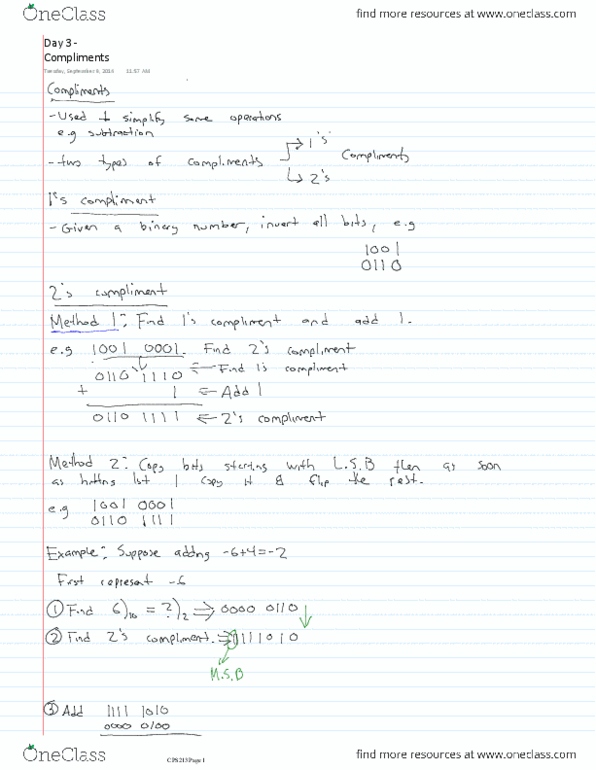 OneClass
find more resources at www.oneclass.com
Day 3 -
Compliments
Tuesday, September 9, 2014 11:57 AM
Compliments
- Used to simplify some operations
e.g subtraction
- two types of compliments → 1's
↳ 2's
Compliments
1's compliment
- Given a binary number, invert all bits, e.g
1001
0110
2's compliment
Method 1: Find 1's compliment and add 1.
e.g 1001 0001. Find 2's compliment
0110 1110 ← Find 1's compliment
+ 1 ← Add 1
0110 1111 ← 2's compliment
Method 2: Copy bits starting with L.S.B then as soon
as hitting 1st 1 copy it & flip the rest.
e.g 1001 0001
0110 1111
Example: Suppose adding -6+4=-2
First represent -6
① Find 6)10 = ?)2 ⇒ 0000 0110
② Find 2's compliment. ⇒ 1111010
M.S.B
③ Add 1111 1010
0000 0100
OneClass
CPS213 Page 1
find more resources at www.oneclass.com